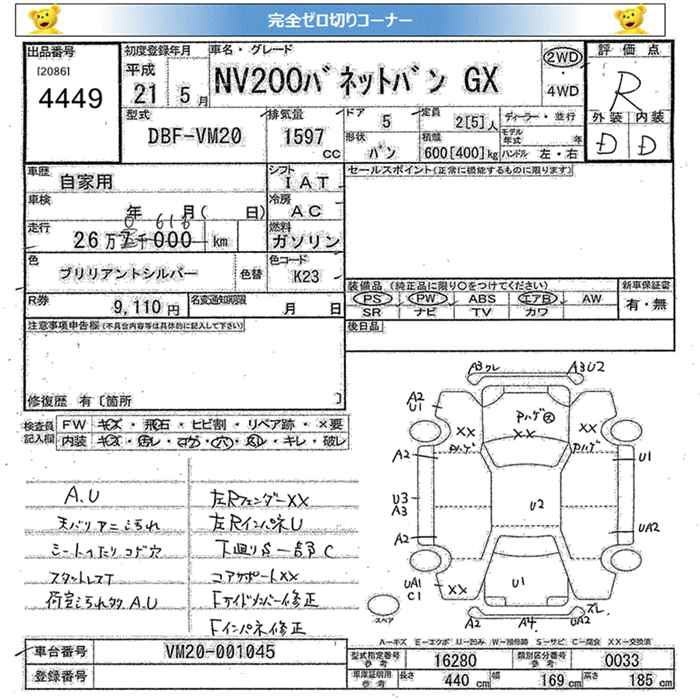 完全ゼロ切りコーナー
出品番号 初度登録年月 車名・グレード 2WD 評価点
[2086] 4449 平成 21 5月 NV200バネットバン GX ・ 4WD R
型式 排気量 ドア 5 定員 2[5]人 ディーラー・並行 外装 内装
DBF-VM20 1597 cc 形状 バン 積載 600[400]kg モデル年式 年 D D
ハンドル 左・右
車歴 自家用 シフト IAT セールスポイント(正常に機能するものに限ります)
車検 年 月( 日) 冷房 AC
走行 26万 千000 km 燃料 ガソリン
色 ブリリアントシルバー 色替 色コード K23
装備品(純正品に限り○をつけてください) 新車保証書
PS PW ABS エアB AW 有・無
SR ナビ TV カワ
R券 9,110円 名変通知期限 月 日
注意事項申告欄(不具合内容等は具体的に記入して下さい) 後日品
修復歴 有〔箇所 〕
検査員記入欄 FW キズ・飛石・ヒビ割・リペア跡・×要
内装 キズ・ ・ ・穴・ ・キレ・破レ
A.U 左Rフェンダー XX
天バリ 左RインパネU
シート コゲ穴 下廻りS一部C
スタットレスT コアサポートXX
荷室 A.U Fサイドメンバー修正
Fインパネ修正
A3ワレ A3U2
A2 U1 Pハゲ
XX XX XX
Pハゲ Pハゲ
A2 U1
U3 A3 U2 UA2
A2
UA1 C1 XX U1 ズレ
スペア A2 A4 UA2
A－キズ E－エクボ U－凹み W－補修跡 S－サビ C－腐食 XX－交換済
車台番号 VM20-001045 型式指定番号 参考 16280 類別区分番号 参考 0033
登録番号 車庫証明用 参考 長さ 440 cm 幅 169 cm 高さ 185 cm